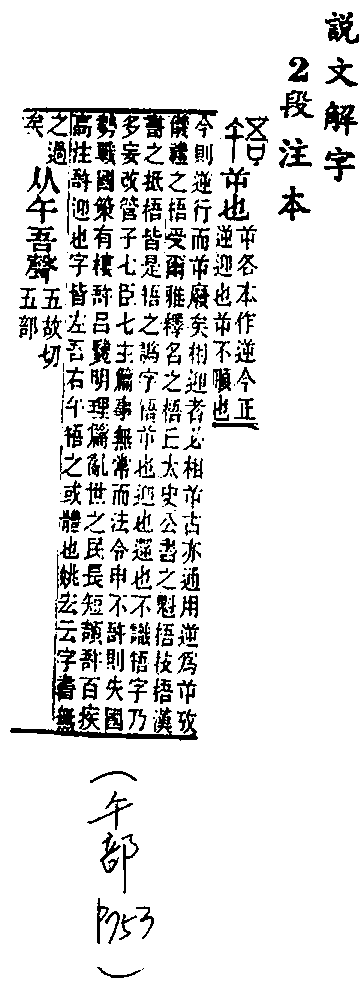 說文解字
2段注本
啎 屰也 屰各本作逆今正
逆迎也屰不順也
今則逆行而屰廢矣相迎者必相屰古亦通用逆爲屰攷
儀禮之梧受爾雅釋名之梧丘太史公書之魁梧枝梧漢
書之抵梧皆是啎之譌字啎屰也迎也遻也不識啎字乃
多妄改管子七臣七主篇事無常而法令申不則失國
勢戰國策有樓呂覽明理篇亂世之民長短頡百疾
高注迎也字皆左吾右午啎之或體也姚宏云字書無
之過
矣 从午吾聲 五故切
五部
(午部 P753)